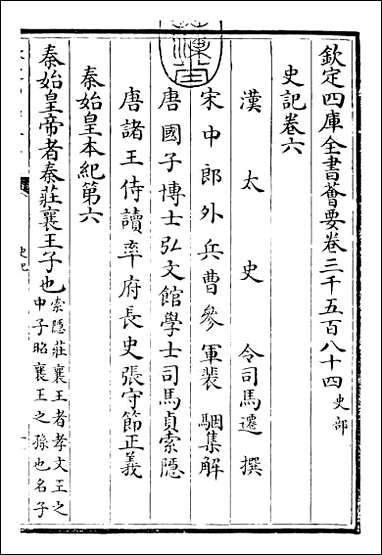 欽定四庫全書薈要卷三千五百八十四 史部
史記卷六
漢太史令司馬遷撰
宋中郎外兵曹參軍裴駰集解
唐國子博士弘文館學士司馬貞索隱
唐諸王侍讀率府長史張守節正義
秦始皇本紀第六
秦始皇帝者秦莊襄王子也 索隱莊襄王者孝文王之
中子昭襄王之孫也名子
史記